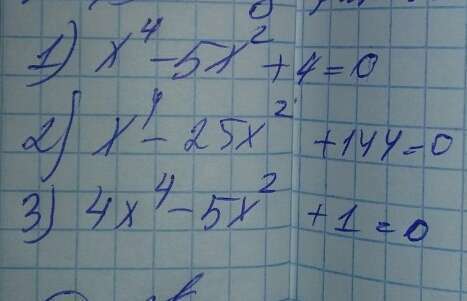 1) x⁴ - 5x² + 4 = 0
2) x⁴ - 25x² + 144 = 0
3) 4x⁴ - 5x² + 1 = 0